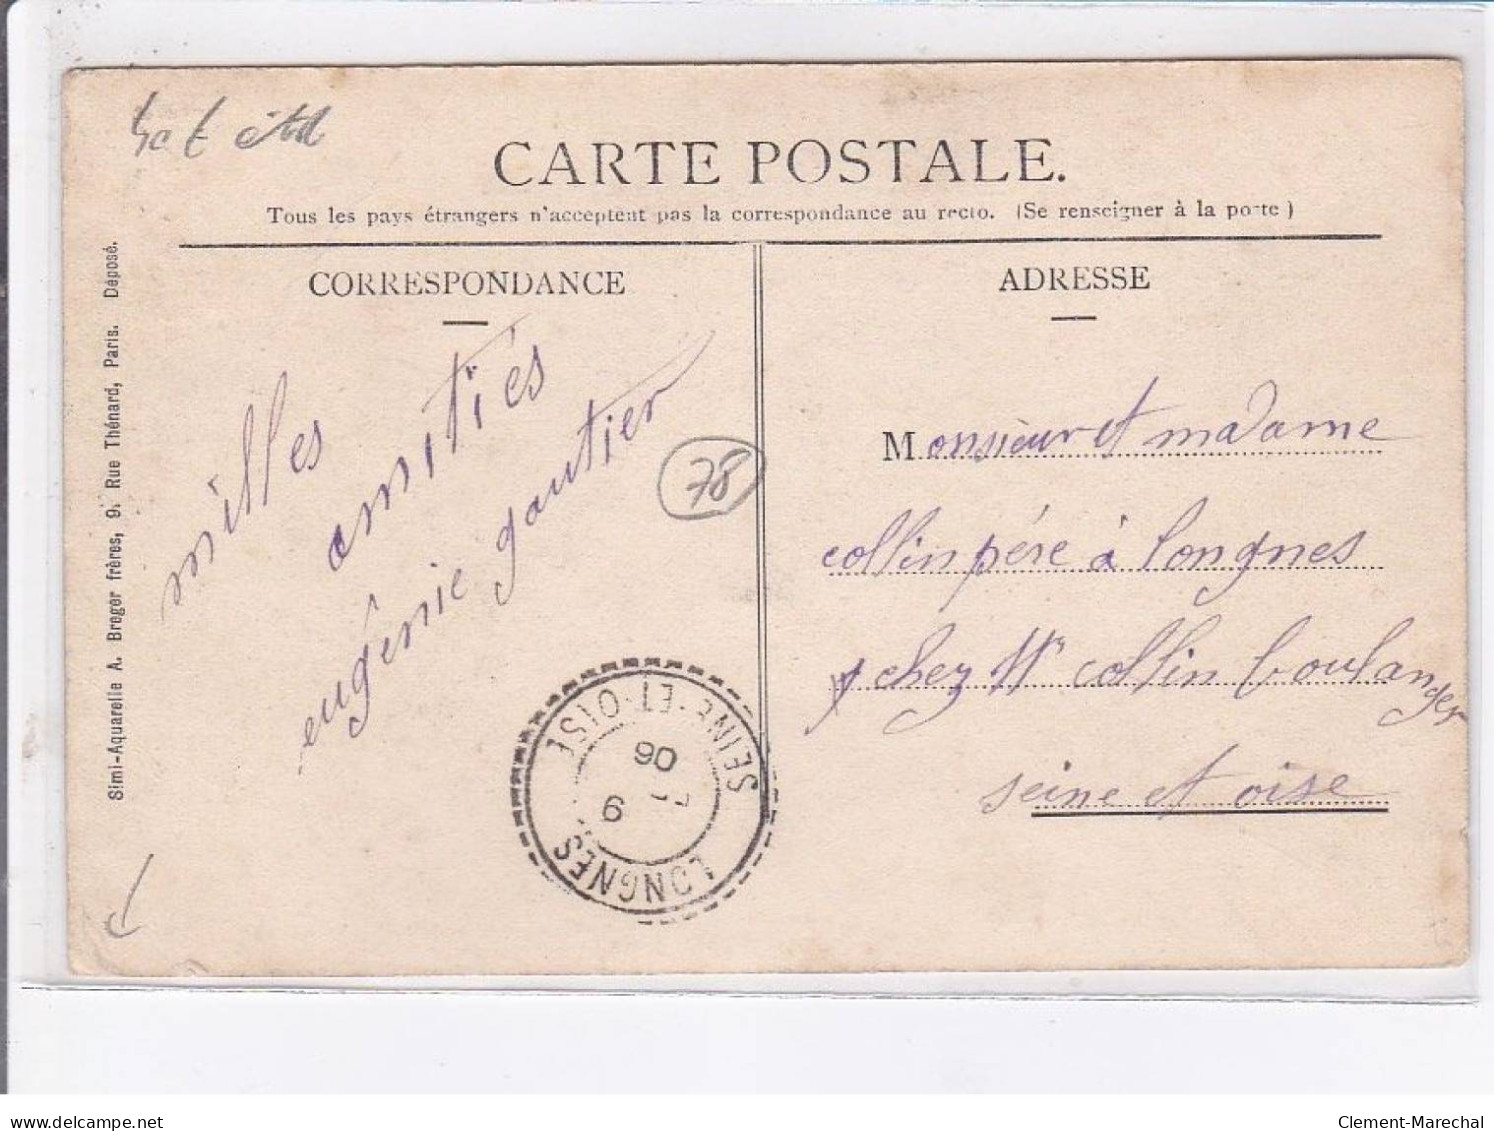 CARTE POSTALE.
Tous les pays étrangers n'acceptent pas la correspondance au recto. (Se renseigner à la poste)
CORRESPONDANCE
milles
amitiés
eugénie gautier
78
ADRESSE
Monsieur et madame
collin pére à longnes
chez Mr collin boulanger
seine et oise
SEINE-ET-OISE
9 7 06
LONGNES
Simi-Aquarelle A. Breger frères, 9, Rue Thénard, Paris. Déposé.
www.delcampe.net
Clement-Marechal